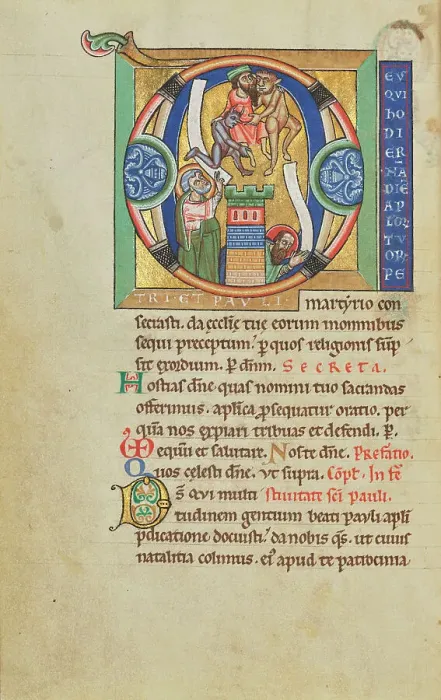 D
EV
QVI
HO
DI
ER
NA
DIE
AP
LOR
TV
OR
PE
TRI·ET PAVLI· martyrio con
secrasti. da ęcclię tuę eorum in omnibus
sequi preceptum, p quos religionis sūp
sit exordium. P dnm. SECRETA.
Hostias dñe quas nomini tuo sacrandas
offerimus. aplica psequatur oratio. per
quā nos expiari tribuas et defendi. P.
equū et salutare. Nos te dñe. Prefatio.
Quos celesti dñe. vt supra. Cōpl. In fe
DS qui multi stiuitate sci pauli.
tudinem gentium beati pavli apli
pdicatione docuisti, da nobis qs. ut cuius
natalitia colimus. ei apud te patrocinia